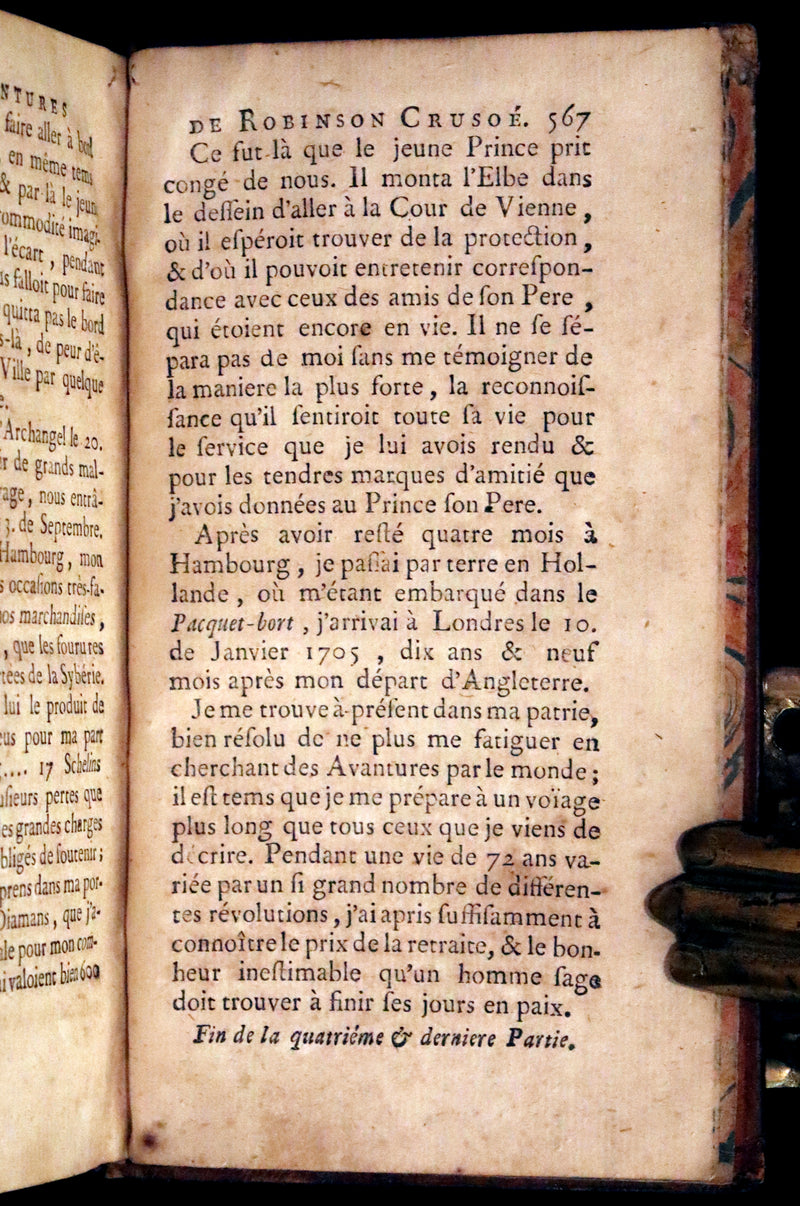 NTURES
faire aller à bord
en même tems
& par là le jeun
ommodité imagi-
l'écart, pendant
is falloit pour faire
quitta pas le bord
s-là, de peur d'é-
Ville par quelque
e.
'Archangel le 20.
r de grands mal-
age, nous entrâ-
3. de Septembre.
Hambourg, mon
s occasions très-fa-
os marchandises,
, que les fourures
tées de la Sybérie.
lui le produit de
eus pour ma part
.... 17 Schelins
sieurs pertes que
es grandes charges
bligés de soutenir;
prens dans ma por-
Diamans, que j'a-
le pour mon com-
i valoient bien 600
DE ROBINSON CRUSOÉ. 567
Ce fut là que le jeune Prince prit
congé de nous. Il monta l'Elbe dans
le deſſein d'aller à la Cour de Vienne,
où il eſpéroit trouver de la protection,
& d'où il pouvoit entretenir correſpon-
dance avec ceux des amis de ſon Pere,
qui étoient encore en vie. Il ne ſe ſé-
para pas de moi ſans me témoigner de
la maniere la plus forte, la reconnoiſ-
ſance qu'il ſentiroit toute ſa vie pour
le ſervice que je lui avois rendu &
pour les tendres marques d'amitié que
j'avois données au Prince ſon Pere.
Après avoir reſté quatre mois à
Hambourg, je paſſai par terre en Hol-
lande, où m'étant embarqué dans le
Pacquet-bort, j'arrivai à Londres le 10.
de Janvier 1705, dix ans & neuf
mois après mon départ d'Angleterre.
Je me trouve à-préſent dans ma patrie,
bien réſolu de ne plus me fatiguer en
cherchant des Avantures par le monde;
il eſt tems que je me prépare à un voïage
plus long que tous ceux que je viens de
décrire. Pendant une vie de 72 ans va-
riée par un ſi grand nombre de différen-
tes révolutions, j'ai apris ſuffiſamment à
connoître le prix de la retraite, & le bon-
heur ineſtimable qu'un homme ſage
doit trouver à finir ſes jours en paix.
Fin de la quatriéme & derniere Partie.